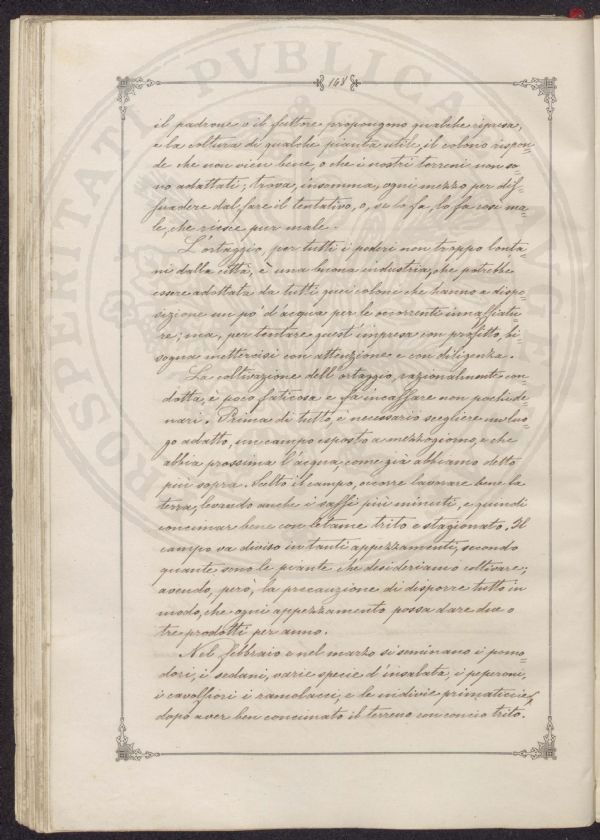 148
il padrone o il fattore propongono qualche ripresa,
e la coltura di qualche pianta utile, il colono rispon-
de che non vien bene, o che i nostri terreni non so-
no adattati; trova, insomma, ogni mezzo per dis-
suadere dal fare il tentativo, o, se lo fa, lo fa così ma-
le, che riesce pur male.
L'ortaggio, per tutti i poderi non troppo lonta-
ni dalla città, è una buona industria, che potrebbe
essere adottata da tutti quei coloni che hanno a dispo-
sizione un po' d'acqua per le occorrenti innaffiatu-
re; ma, per tentare quest'impresa con profitto, bi-
sogna mettercisi con attenzione e con diligenza.
La coltivazione dell'ortaggio, razionalmente con-
dotta, è poco faticosa e fa incassare non pochi de-
nari. Prima di tutto, è necessario scegliere un luo-
go adatto, un campo esposto a mezzogiorno, e che
abbia prossima l'acqua, come già abbiamo detto
più sopra. Scelto il campo, occorre lavorare bene la
terra, levando anche i sassi più minuti, e quindi
concimar bene con letame trito e stagionato. Il
campo va diviso in tanti appezzamenti, secondo
quante sono le piante che desideriamo coltivare;
avendo, però, la precauzione di disporre tutto in
modo, che ogni appezzamento possa dare due o
tre prodotti per anno.
Nel febbraio e nel marzo si seminano i pomo-
dori, i sedani, varie specie d'insalata, i peperoni,
i cavolfiori i ramolacci, e le indivie primaticcie,
dopo aver ben concimato il terreno con concio trito.
PROSPERITATI PVBLICAE AVGENDAE